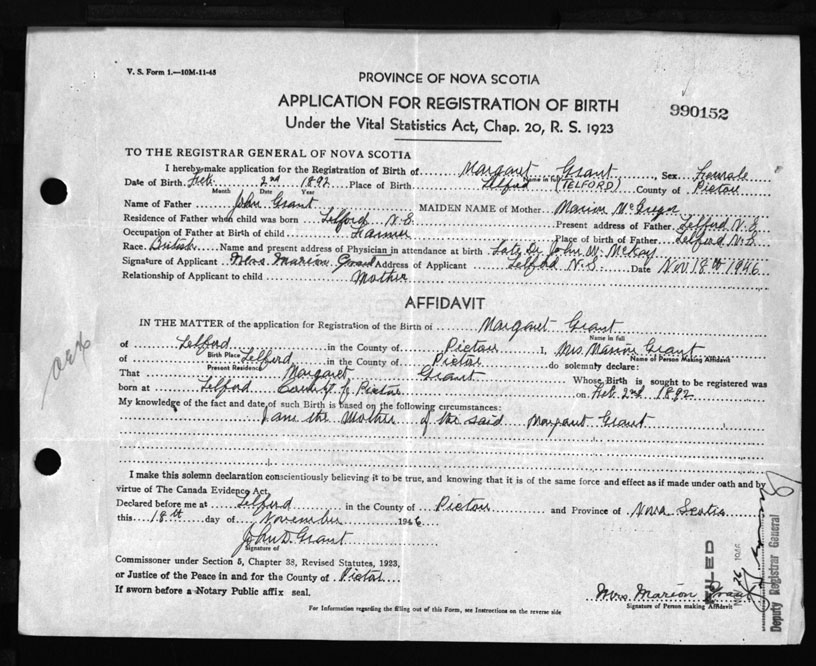 V. S. Form 1.—10M-11-43
PROVINCE OF NOVA SCOTIA
APPLICATION FOR REGISTRATION OF BIRTH
990152
Under the Vital Statistics Act, Chap. 20, R. S. 1923
TO THE REGISTRAR GENERAL OF NOVA SCOTIA
I hereby make application for the Registration of Birth of Margaret Grant, Sex Female
Name in full
Date of Birth Feb. 2nd 1892 Place of Birth Telford (TELFORD) County of Pictou
Month Date Year
Name of Father John Grant MAIDEN NAME of Mother Marion McGregor
Residence of Father when child was born Telford N.S. Present address of Father Telford N.S.
Occupation of Father at Birth of child Farmer Place of birth of Father Telford N.S.
Race British Name and present address of Physician in attendance at birth Late Dr John W. McKay
Signature of Applicant Mrs Marion Grant Address of Applicant Telford N.S. Date Nov 18th 1946
Relationship of Applicant to child Mother
AFFIDAVIT
IN THE MATTER of the application for Registration of the Birth of Margaret Grant
Name in full
of Telford in the County of Pictou I, Mrs Marion Grant
Birth Place Name of Person Making Affidavit
of Telford in the County of Pictou do solemnly declare:
Present Residence
That Margaret Grant Whose Birth is sought to be registered was
born at Telford County of Pictou on Feb. 2nd 1892
My knowledge of the fact and date of such Birth is based on the following circumstances:
I am the Mother of the said Margaret Grant
I make this solemn declaration conscientiously believing it to be true, and knowing that it is of the same force and effect as if made under oath and by
virtue of The Canada Evidence Act.
Declared before me at Telford in the County of Pictou and Province of Nova Scotia
this 18th day of November 1946
John D. Grant
Signature of
Commissoner under Section 5, Chapter 38, Revised Statutes, 1923,
or Justice of the Peace in and for the County of Pictou
If sworn before a Notary Public affix seal.
Mrs Marion Grant
Signature of Person making Affidavit
For Information regarding the filling out of this Form, see Instructions on the reverse side
FILED
NOV 26 1946
Deputy Registrar General